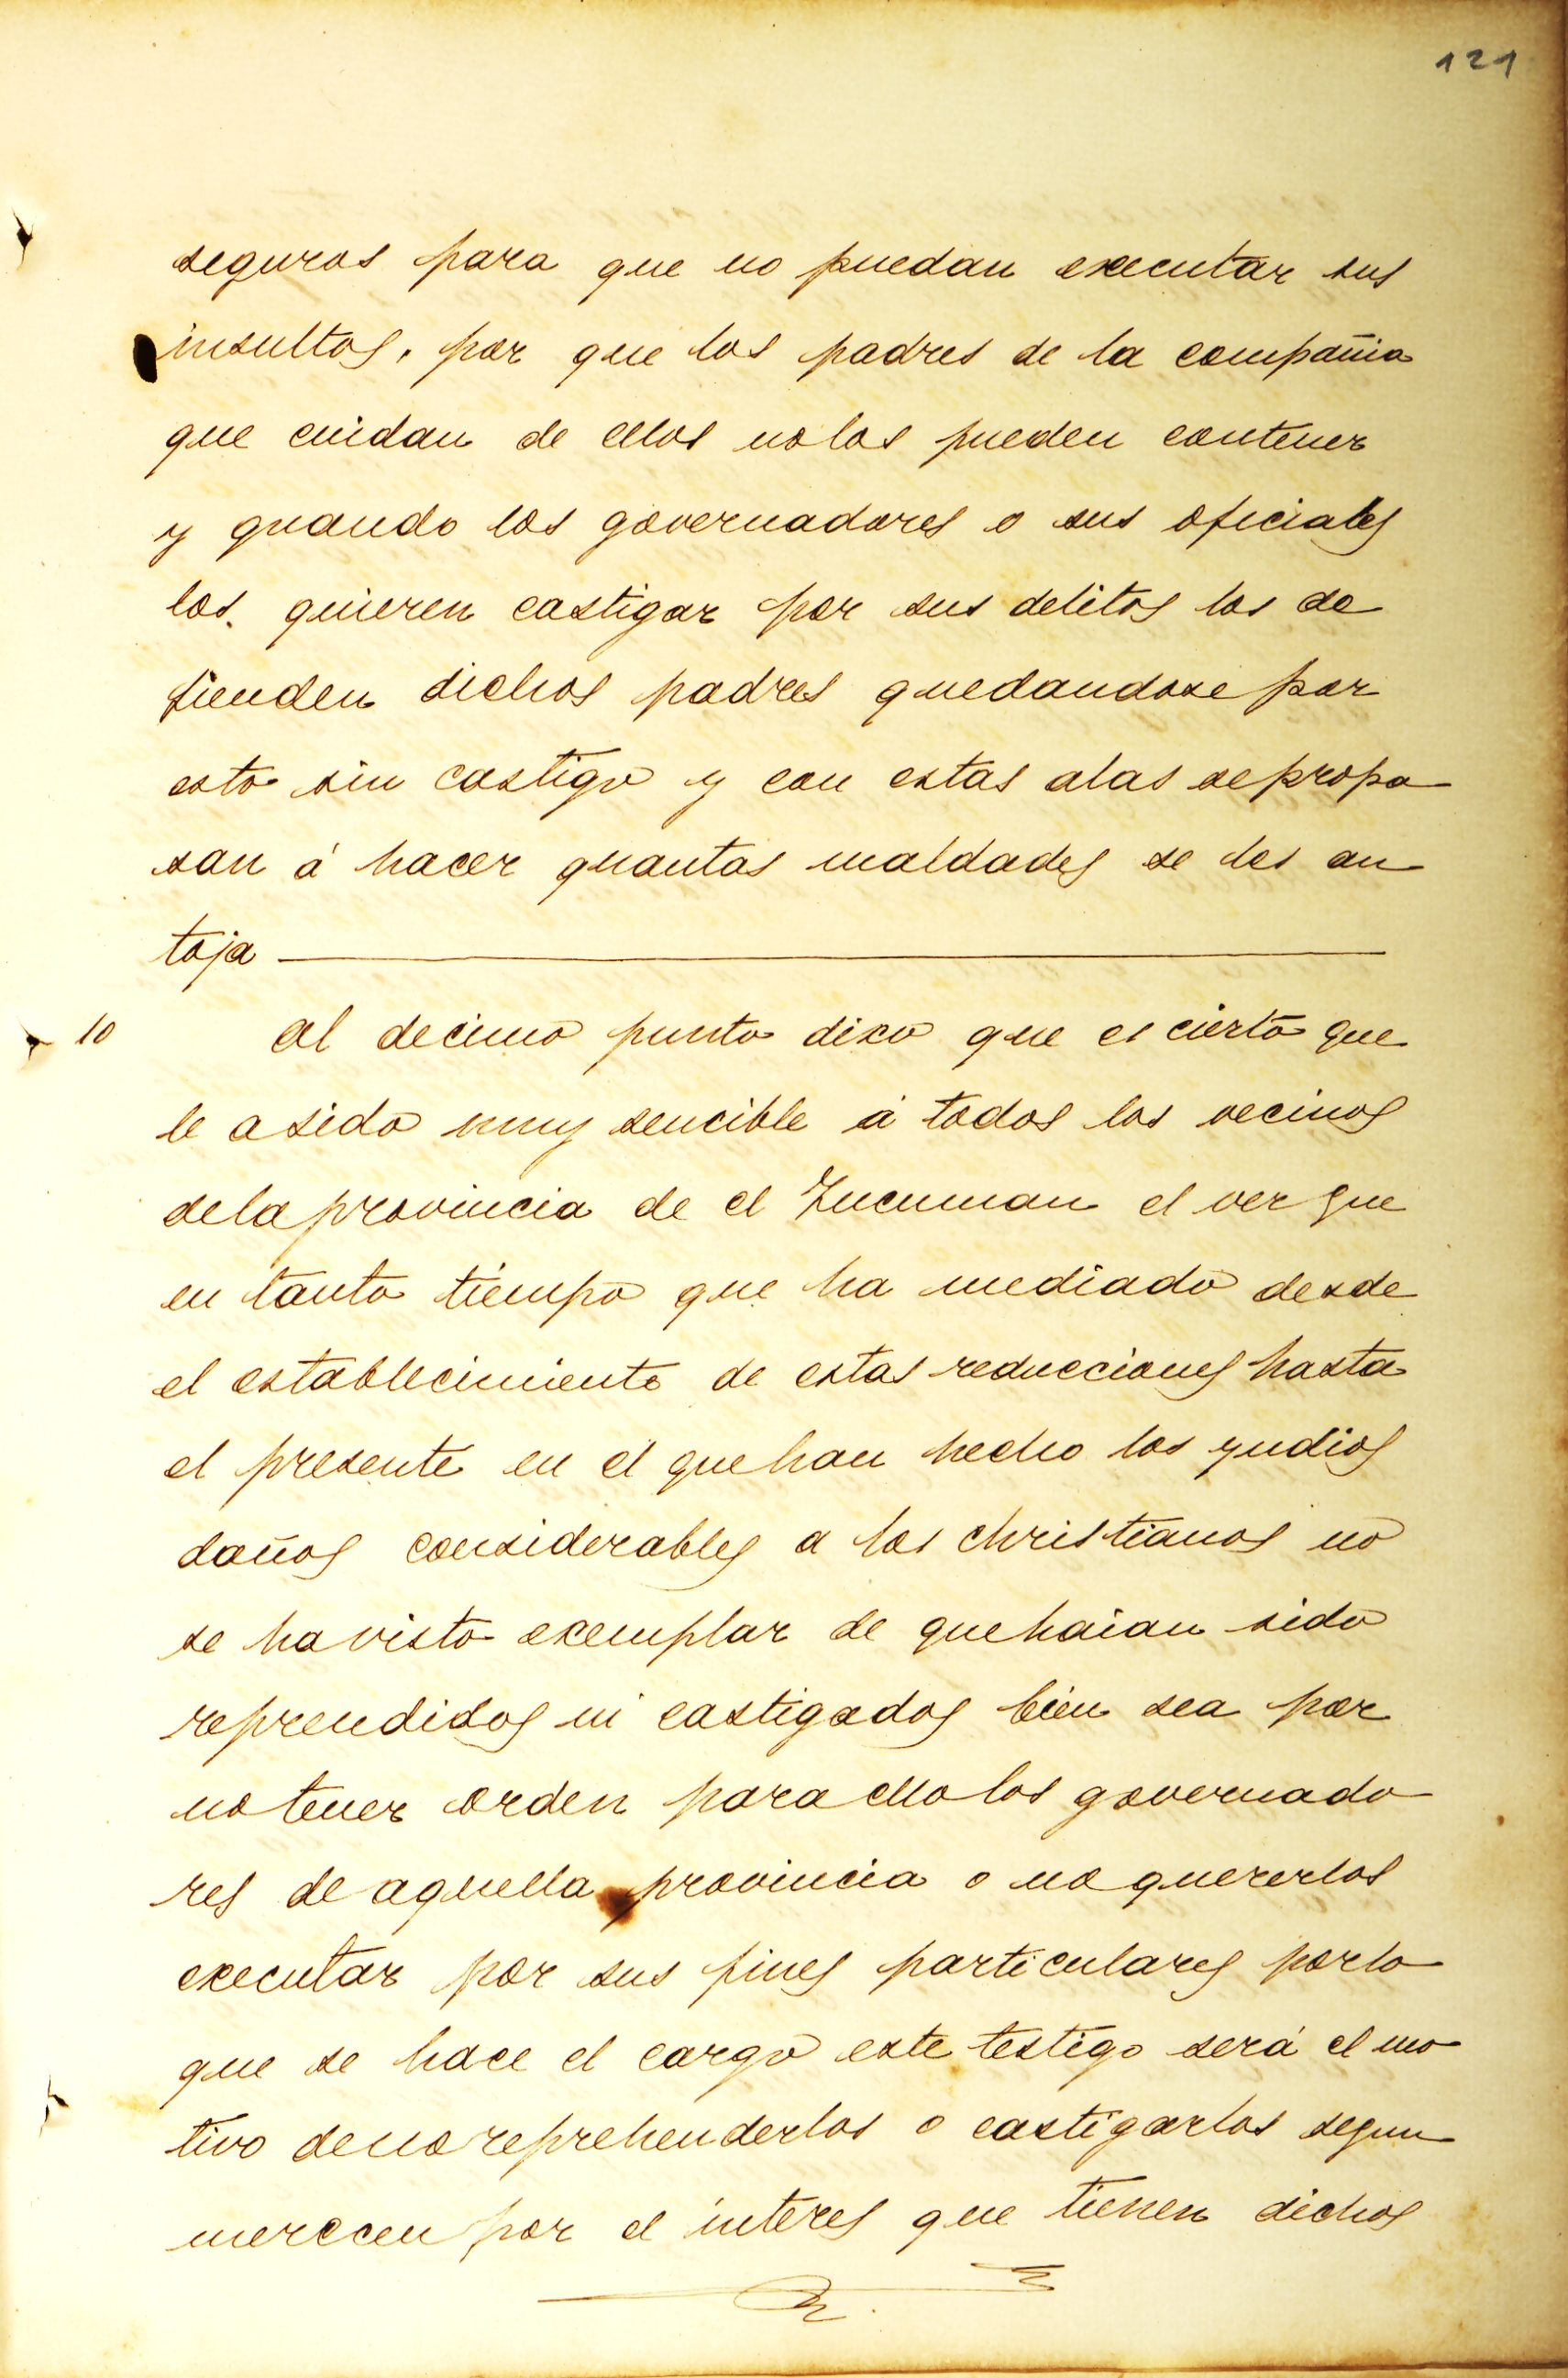 121
seguros para que no puedan executar sus
insultos, por que los padres de la compañia
que cuidan de ellos nolos pueden contener
y quando los governadores o sus oficiales
los. quieren castigar por sus delitos los de
fienden dichos padres quedandose por
esto sin castigo y con estas alas se propa
san á hacer quantas maldades se les an
toja
10 Al decimo punto dixo que es cierto que
le a sido muy sencible á todos los vecinos
dela provincia de el Tucuman el ver que
en tanto tiempo que ha mediado desde
el establecimiento de estas reducciones hasta
el presente en el que han hecho los yndios
daños considerables a los christianos no
se ha visto exemplar de que haian sido
reprendidos ni castigados bien sea por
no tener orden para ello los governado
res de aquella provincia o no quererlos
executar por sus fines particulares porlo
que se hace el cargo este testigo será el mo
tivo deno reprehenderlos o castigarlos segun
merecen por el interes que tienen dichos